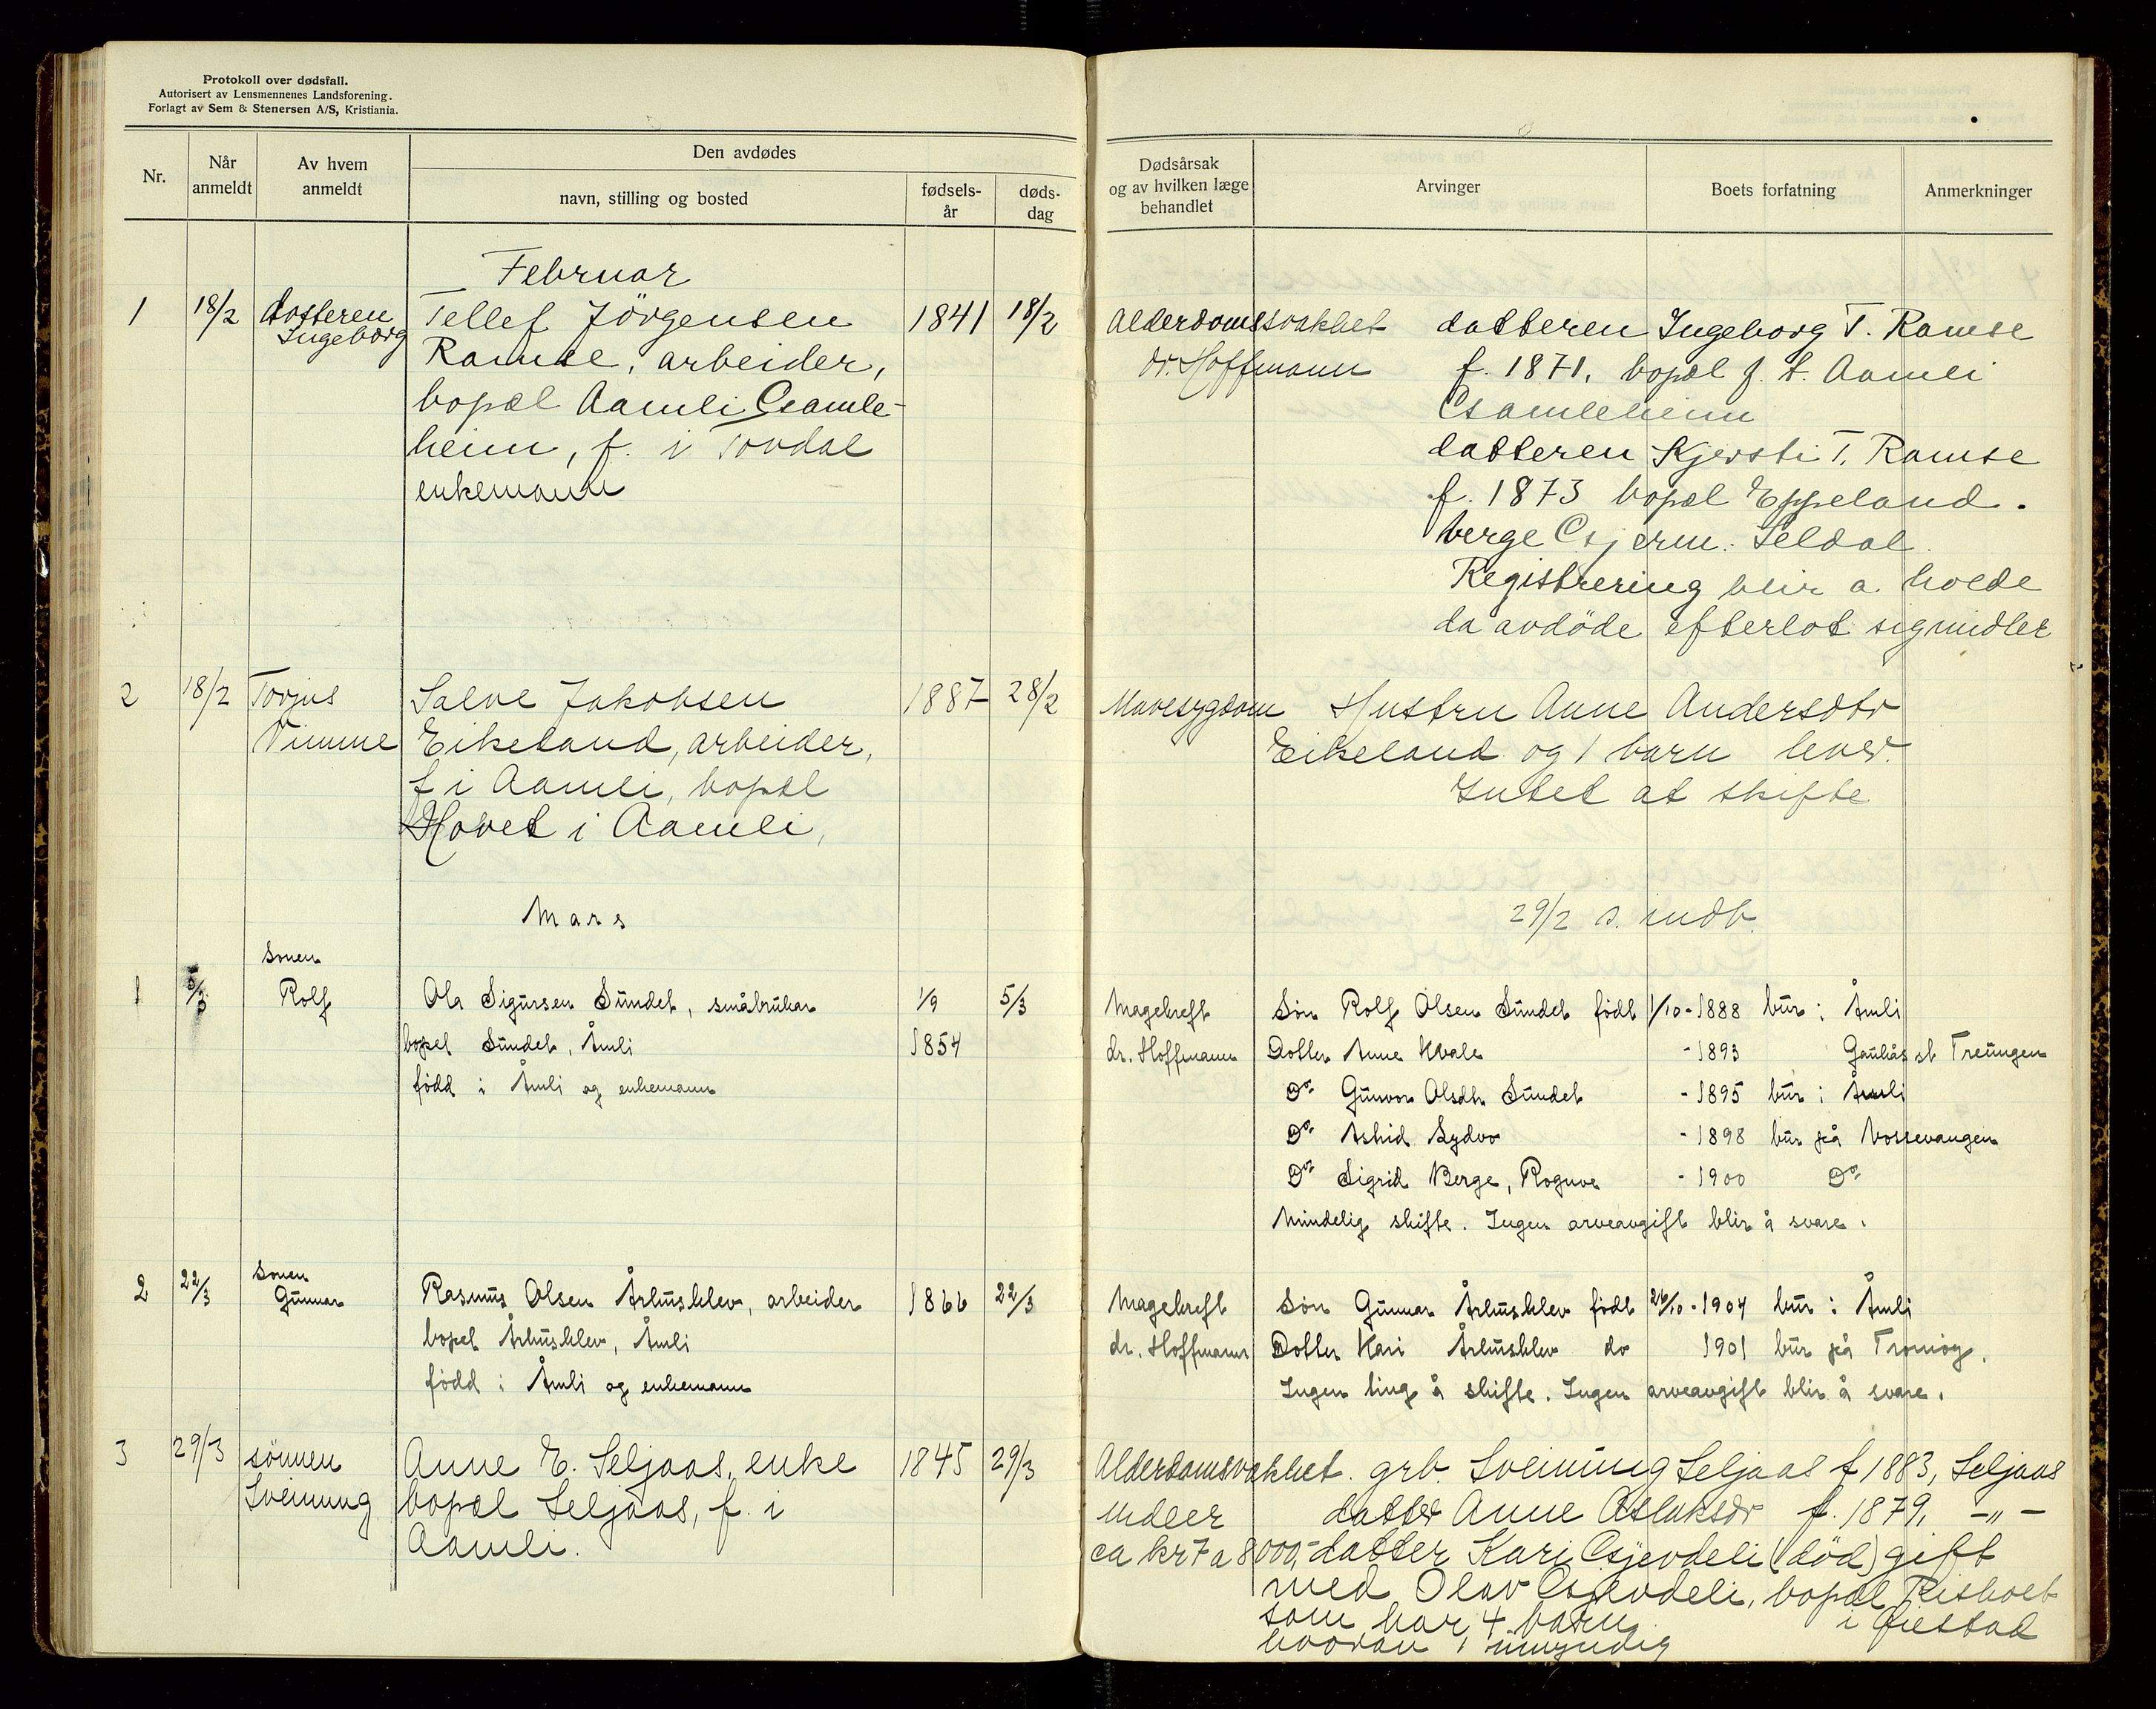 Protokoll over dødsfall.
Autorisert av Lensmennenes Landsforening.
Forlagt av Sem & Stenersen A/S, Kristiania.
Nr.
Når anmeldt
Av hvem anmeldt
Den avdødes
navn, stilling og bosted
fødsels-år
døds-dag
Dødsårsak og av hvilken læge behandlet
Arvinger
Boets forfatning
Anmerkninger
Februar
1 18/2 datteren Tellef Jörgensen 1841 18/2
Ingeborg Ramse, arbeider,
bopæl Aamli Gamle-
heim, f. i Tovdal
enkemann
Alderdomssvakhet datteren Ingeborg T. Ramse
dr. Hoffmann f. 1871, bopæl f. t. Aamli
Gamleheim
datteren Kjersti T. Ramse
f. 1873 bopæl Eppeland.
verge Gjerm. Seldal
Registrering blir a. holde
da avdöde efterlot sig midler
2 18/2 Torjus Salve Jakobsen 1887 28/2
Vimme Eikeland, arbeider,
f i Aamli, bopæl
Hovet i Aamli,
Mavesygdom Hustru Anne Andersdtr
Eikeland og 1 barn lever.
Intet at skifte
29/2 s. indb.
Mars
Sonen
1 5/3 Rolf Ola Sigursen Sundet, småbrukar 1/9 5/3
bopel Sundet, Åmli 1854
född i Åmli og enkemann
Magekreft Søn Rolf Olsen Sundet född 1/10-1888 bur i Åmli
dr. Hoffmann Dotter Anne Kvale -1893 Gauhås st Treungen
Do Gunvor Olsdtr Sundet -1895 bur i Åmli
Do Astrid Lydvo -1898 bur på Vossevangen
Do Sigrid Berge, Rognve -1900 Do
Mindelig skifte. Ingen arveavgift blir å svare.
Sonen
2 22/3 Gunnar Rasmus Olsen Århusklev, arbeider 1866 22/3
bopel Århusklev, Åmli
född i Åmli og enkemann
Magekreft Søn Gunnar Århusklev född 26/10-1904 bur i Åmli
dr. Hoffmann Dotter Kari Århusklev do 1901 bur på Tromøy.
Ingen ting å skifte. Ingen arveavgift blir å svare.
3 29/3 sönnen Anne E. Seljaas, enke 1845 29/3
Sveinung bopæl Seljaas, f. i
Aamli.
Alderdomsvakhet. grb. Sveinung Seljaas f 1883, Seljaas
Midler datter Anne Aslaksdr f. 1879, -"-
ca kr 7 a 8000,- datter Kari Gjevdeli (död) gift
med Olav Gjevdeli, bopæl Risholt
som har 4 barn i Øiestad
hvorav 1 umyndig